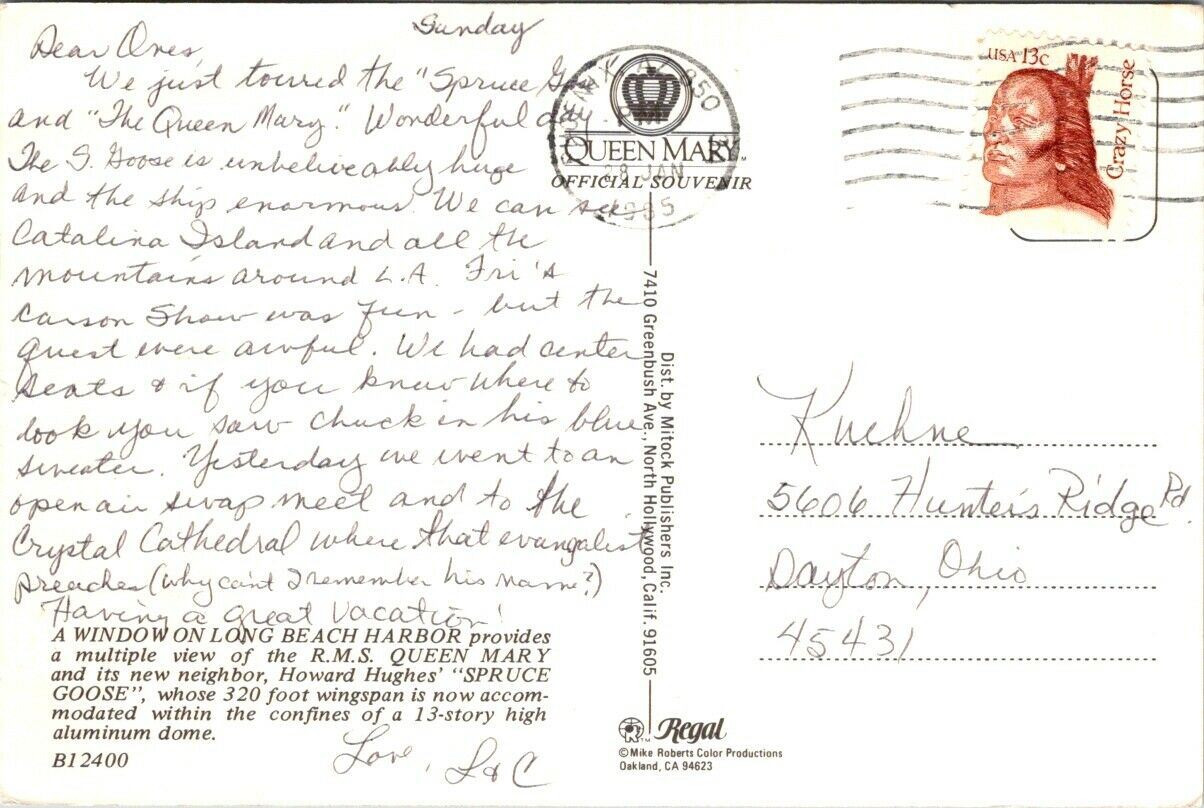 Sunday
Dear Ones,
We just toured the "Spruce G
and "The Queen Mary." Wonderful day.
The S. Goose is unbeliveably huge
and the ship enormous. We can see
Catalina Island and all the
mountains around L.A. Fri's
Carson Show was fun - but the
guest were awful. We had center
seats & if you knew where to
look you saw Chuck in his blue
sweater. Yesterday we went to an
open air swap meet and to the
Crystal Cathedral where that evangalist
preaches (why can't I remember his name?)
Having a great vacation!
A WINDOW ON LONG BEACH HARBOR provides
a multiple view of the R.M.S. QUEEN MARY
and its new neighbor, Howard Hughes' "SPRUCE
GOOSE", whose 320 foot wingspan is now accom-
modated within the confines of a 13-story high
aluminum dome.
B12400
Love, L & C
QUEEN MARY
OFFICIAL SOUVENIR
850
28 JAN
1985
Dist. by Mitock Publishers Inc.
7410 Greenbush Ave., North Hollywood, Calif. 91605
Regal
© Mike Roberts Color Productions
Oakland, CA 94623
USA 13c
Crazy Horse
Kuehne
5606 Hunter's Ridge Rd.
Dayton, Ohio
45431